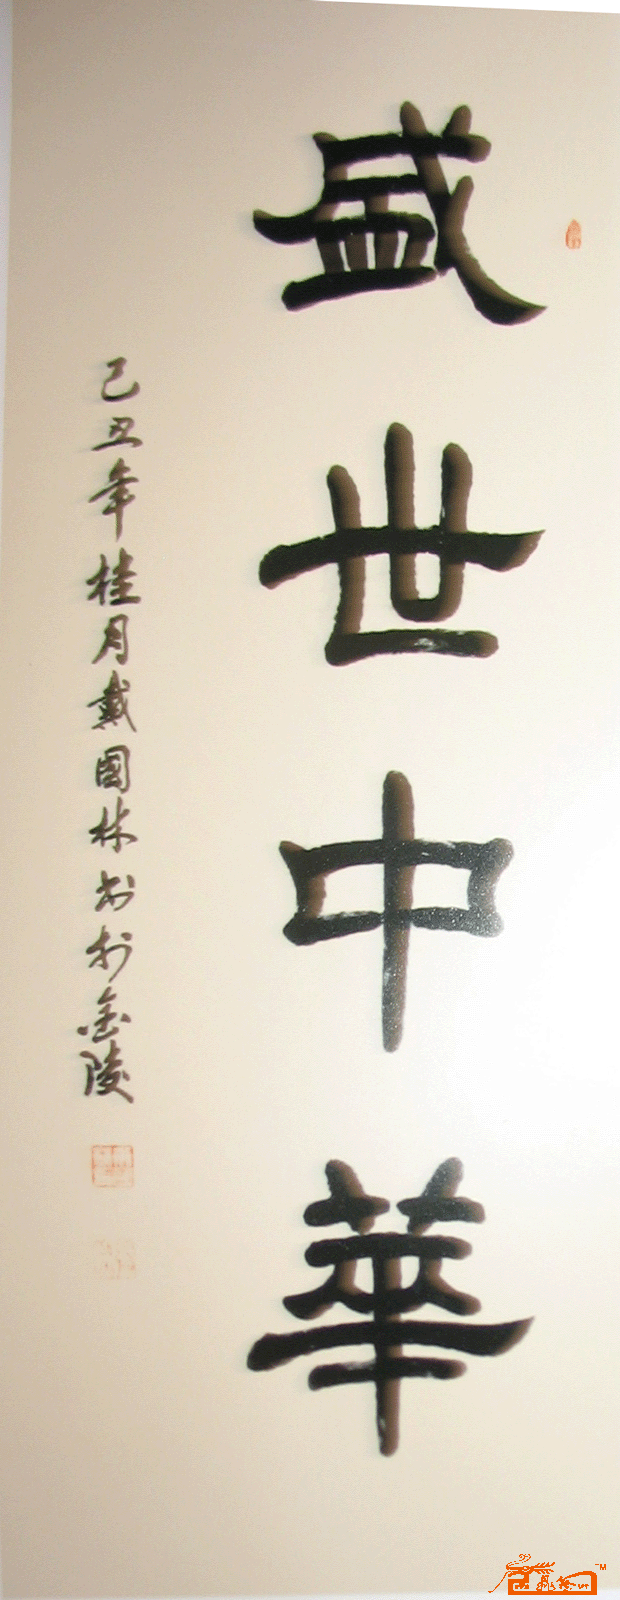 盛世中華
己丑年桂月戴國林書於金陵